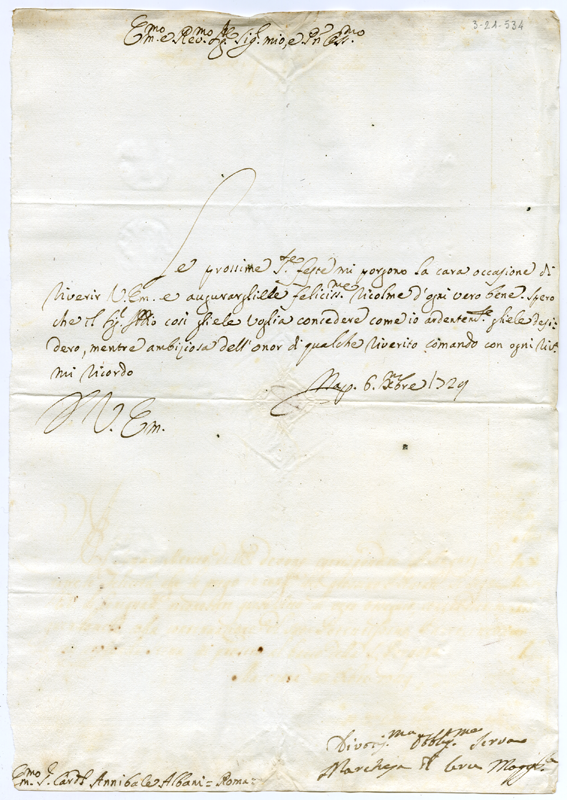 3-21-534
Em.mo e Rev.mo Sig.r mio, e Pn
Le prossime S.te feste mi porgono la cara occasione di
riverir V. Em. e augurargliele feliciss.me ricolme d'ogni vero bene. Spero
che il Sig. Iddio così gliele voglia concedere come io ardentem.te gliele desi-
dero, mentre ambiziosa dell'onor di qualche riverito comando con ogni
mi ricordo
Nap. 6. Xbre 1729
D V. Em.
Divotiss.ma Obblig.ma Serva
Marchesa
Em.mo S. Card.l Annibale Albani = Roma =